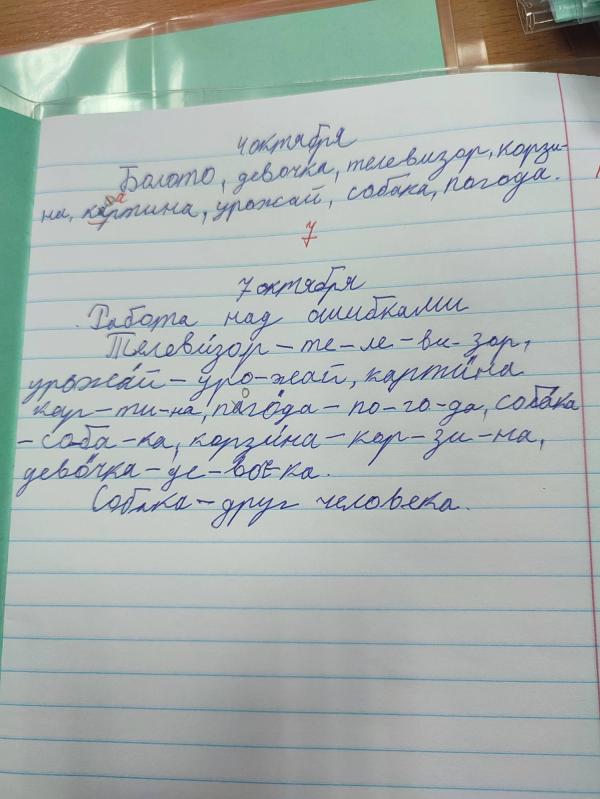 4 октября
Болото, девочка, телевизор, корзи-
на, картина, урожай, собака, погода.
7
7 октября
Работа над ошибками
Телеви́зор – те – ле – ви – зор,
урожа́й – уро – жай, карти́на
кар – ти – на, пого́да – по – го – да, соба́ка
– соба – ка, корзи́на – кор – зи – на,
дево́чка – де – воч – ка.
Собака – друг человека.